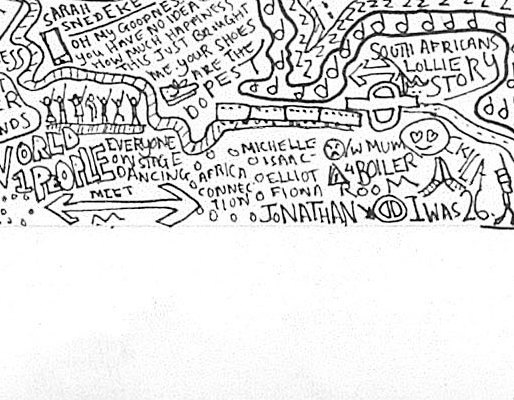 SARAH
SNEDEKE
OH MY GOODNES
YOU HAVE NO IDEA
HOW MUCH HAPPINESS
THIS JUST BROUGHT
ME YOUR SHOES
ARE THE
DOPEST
SOUTH AFRICANS
LOLLIE
STORY
WORLD
1 PEOPLE
EVERYONE
ON STAGE
DANCING
MEET
AFRICA
CONNEC
TION
MICHELLE
ISAAC
ELLIOT
FIONA
JONATHAN
/W MUM
4 BOILER
ROOM
I WAS 26.